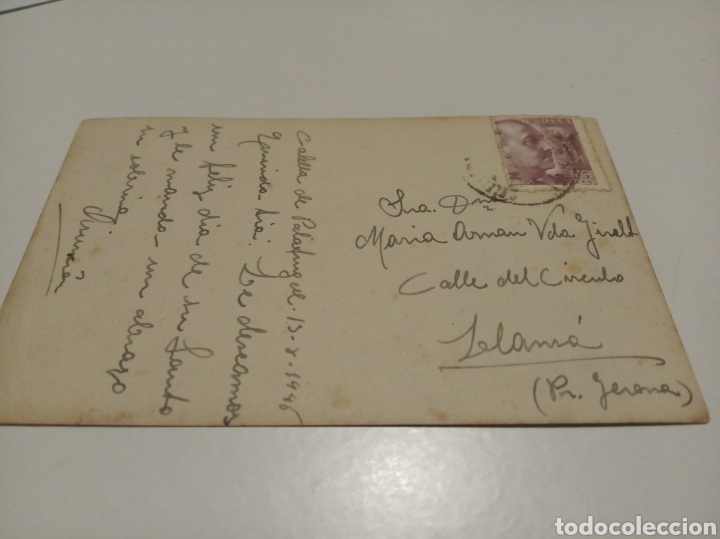 Calella de Palafrugell. 13-8-1946
Querida tía: Le deseamos
un feliz día de su Santo
y le manda un abrazo
su sobrina
Sra. Dña
Maria Arnau Vda Giralt
Calle del Círculo
Llansá
(Pr. Gerona)
todocoleccion